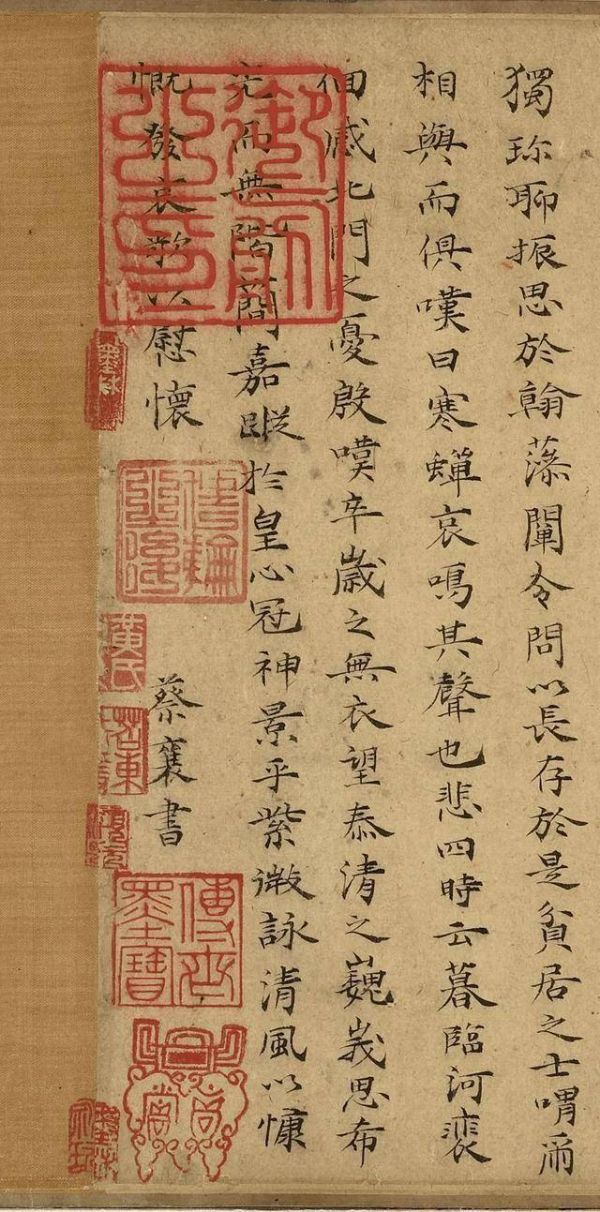 獨珍聊振思於翰藻闡令問以長存於是貧居之士喟爾
相與而俱嘆曰寒蟬哀鳴其聲也悲四時云暮臨河裴
徊感北門之憂殷嘆卒歲之無衣望泰清之巍峩思希
光而無階簡嘉蹤於皇心冠神景乎紫微詠清風以慷
慨發哀歌以慰懷
蔡襄書
墨林
黃氏